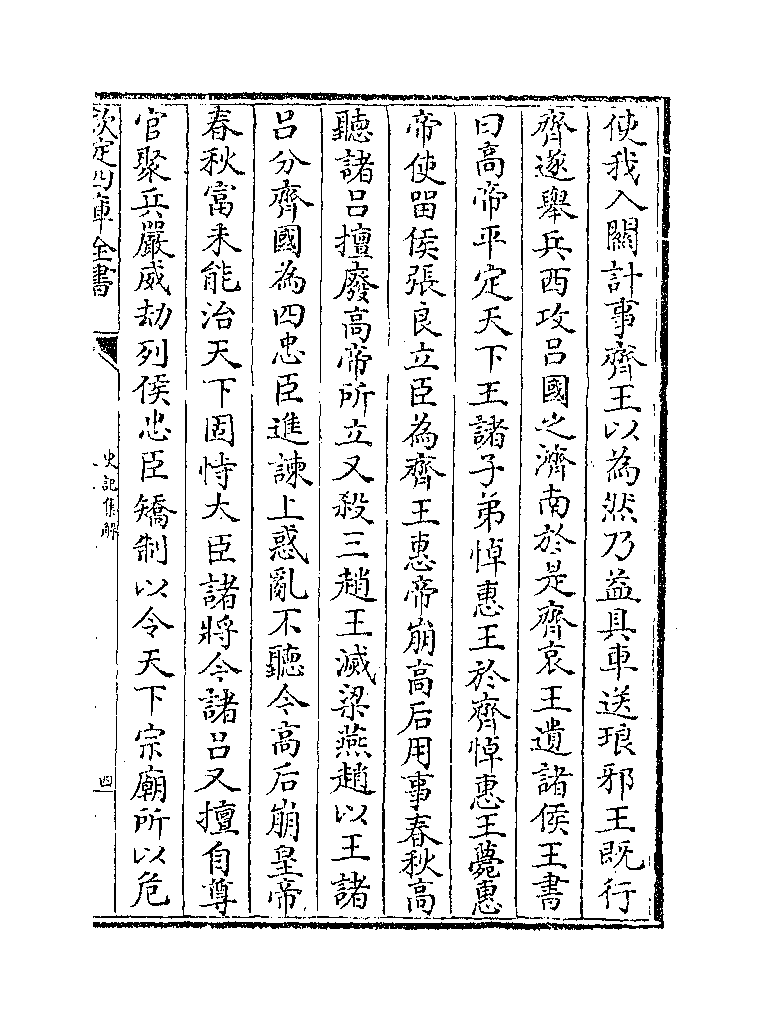 使我入關計事齊王以為然乃益具車送琅邪王既行
齊遂舉兵西攻吕國之濟南於是齊哀王遺諸侯王書
曰高帝平定天下王諸子弟悼惠王於齊悼惠王薨惠
帝使留侯張良立臣為齊王惠帝崩高后用事春秋高
聽諸吕擅廢高帝所立又殺三趙王滅梁燕趙以王諸
吕分齊國為四忠臣進諫上惑亂不聽今高后崩皇帝
春秋富未能治天下固恃大臣諸將今諸吕又擅自尊
官聚兵嚴威劫列侯忠臣矯制以令天下宗廟所以危
欽定四庫全書
史記集解
四